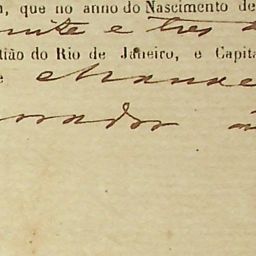 , que no anno do Nascimento de
vinte e tres
tião do Rio de Janeiro, e Capita
e Manoe
morador